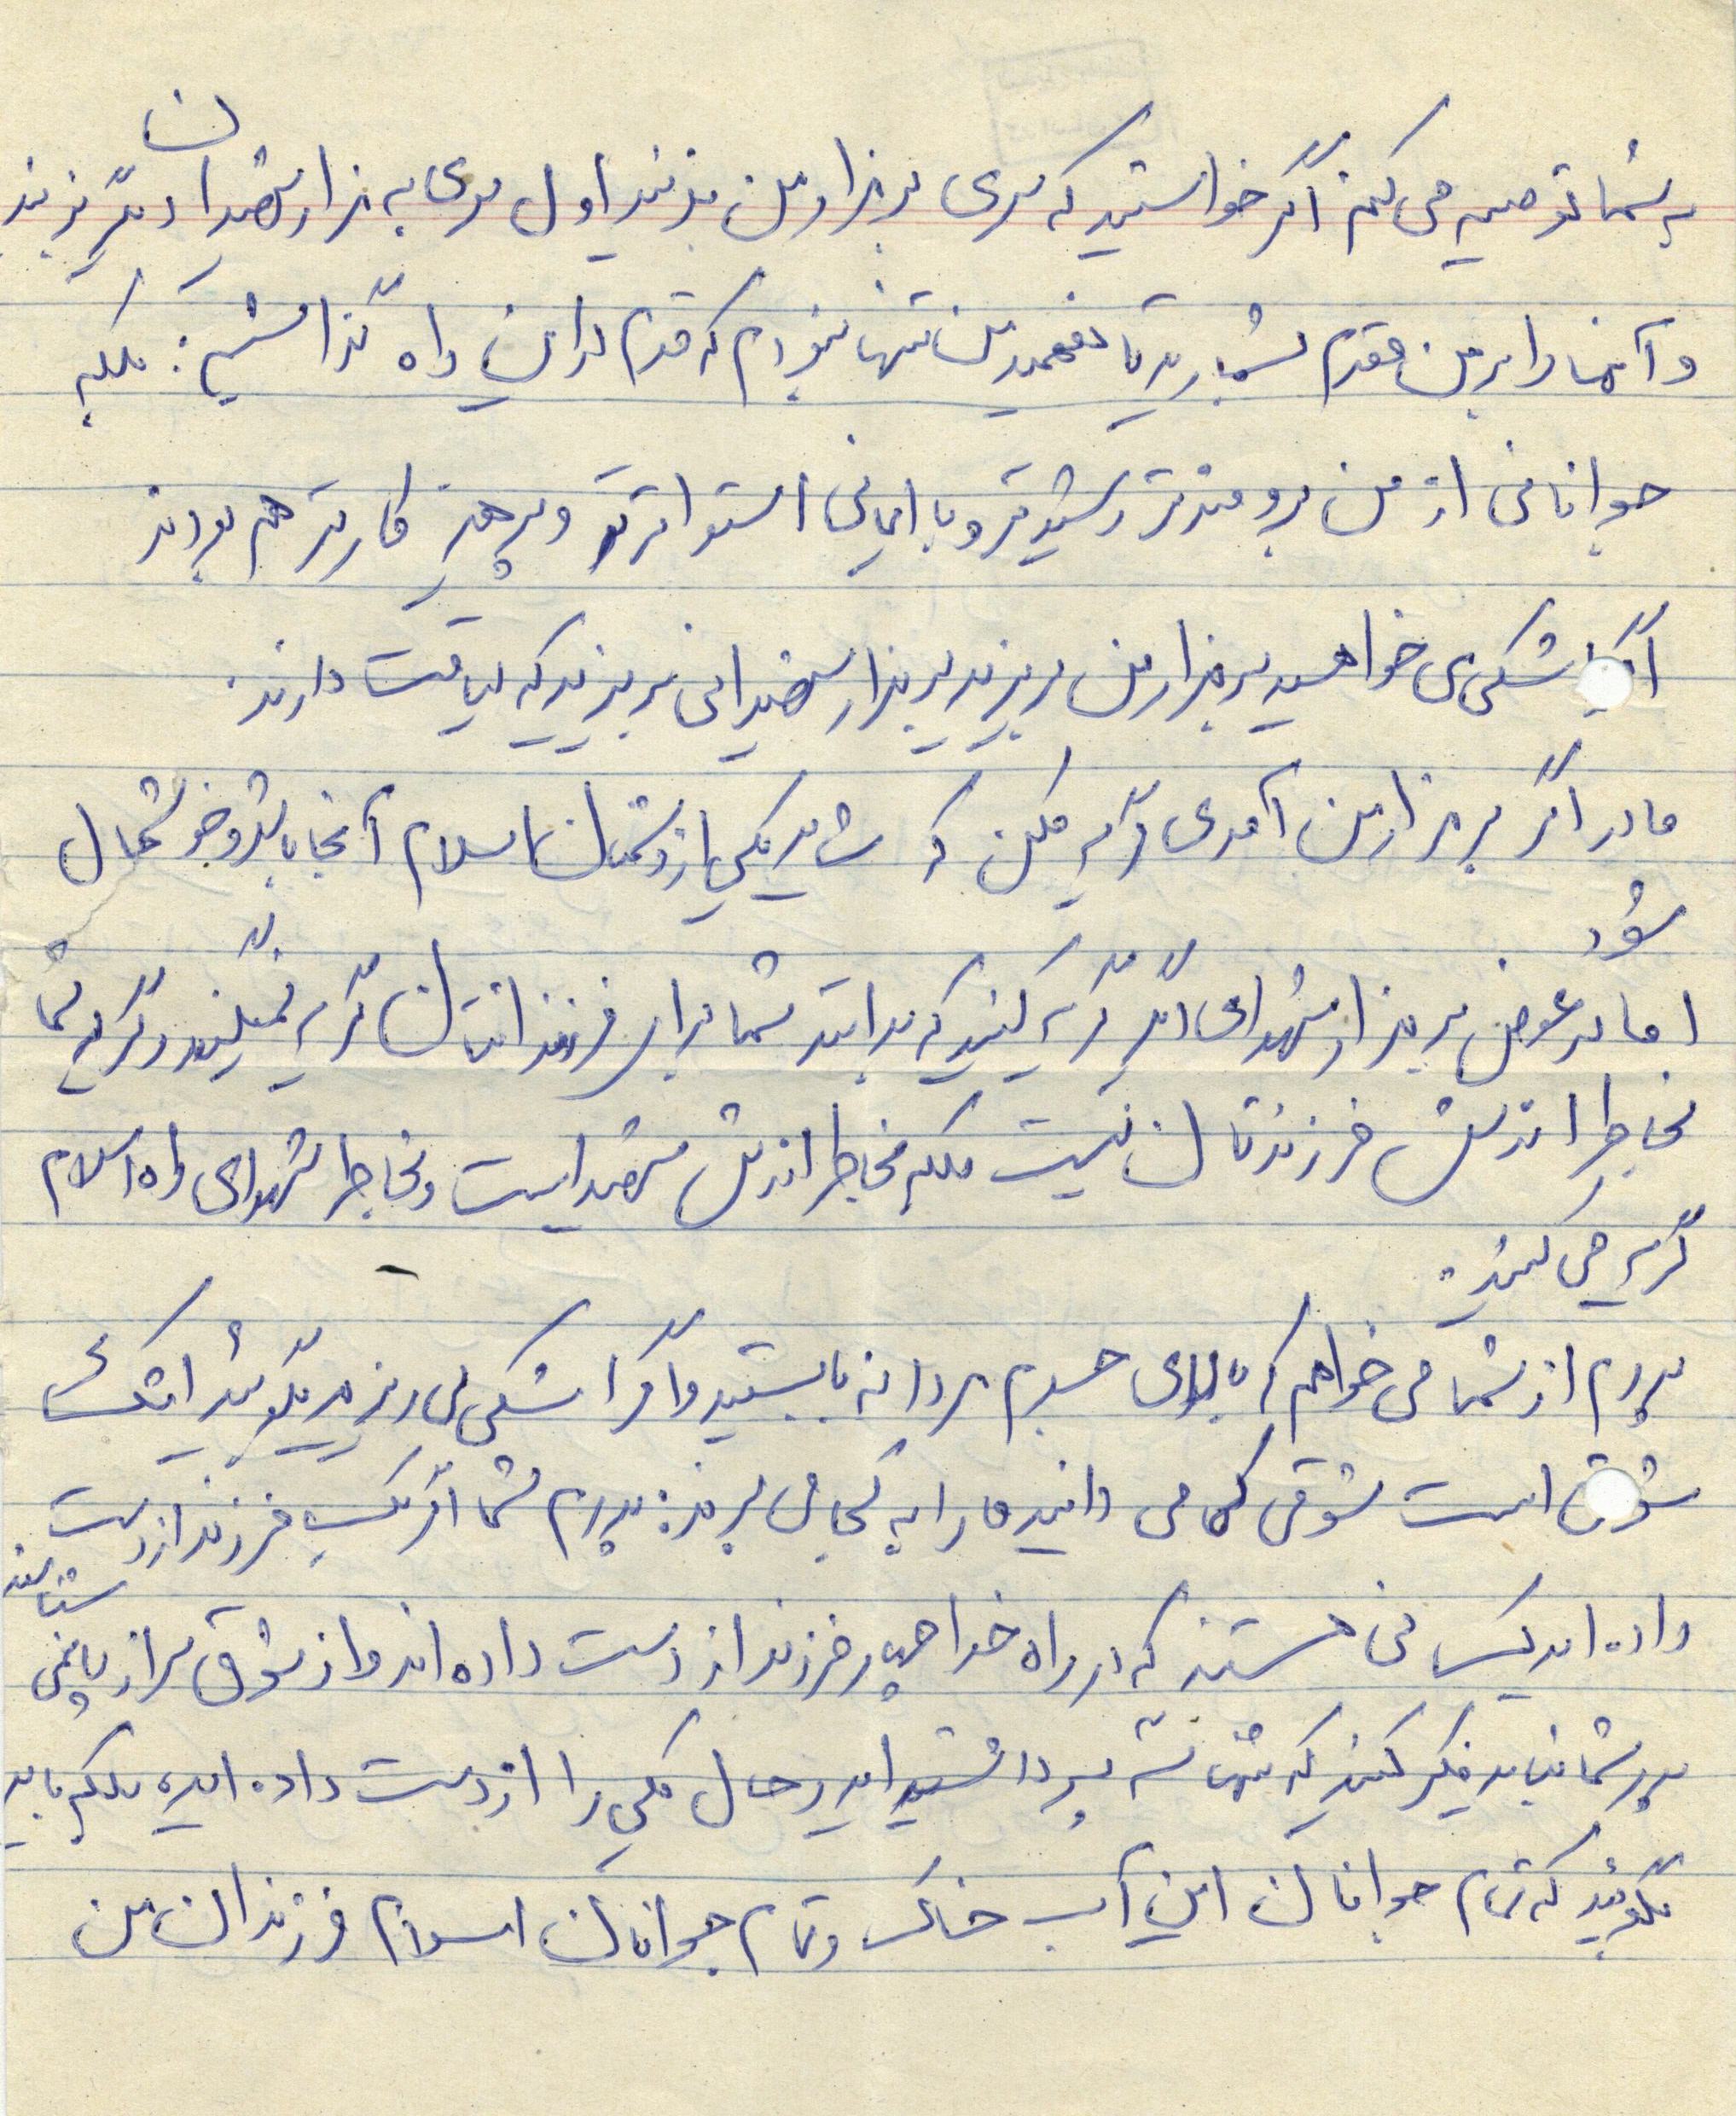 به شما توصیه می کنم اگر خواستید که سری به مزار من بزنید اول سری به مزار شهیدان دیگر بزنید
و آنها را بر من مقدم بشمارید تا بفهمید من تنها نبودم که قدم در این راه گذاشتیم: بلکه
جوانانی از من برومندتر رشیدتر و با ایمانی استوارتر و پرهیزکارتر هم بودند
اگر اشکی می خواهید بر مزار من بریزید بر مزار شهیدانی بریزید که لیاقت دارند.
مادر اگر بر مزار من آمدی گریه مکن که شاید یکی از دشمنان اسلام آنجا باشد و خوشحال
شود
اما در عوض بر مزار شهدای دیگر گریه کنید که بدانند شما برای فرزندانتان گریه نمیکنید و گریه شما
بخاطر از دست فرزندتان نیست بلکه بخاطر شهید است و بخاطر شهدای راه اسلام
گریه می کنید.
پدرم از شما می خواهم که بالای جسدم مردانه بایستید و اگر اشکی می ریزید بگوئید اشک
شوق است شوقی که می دانید ما را به کجا می برند: پدرم شما اگر یک فرزند از دست
داده اید کسانی هستند که در راه خدا چهار فرزند از دست داده اند و از شوق سر از پا نمی
شناسند
پدر شما نباید فکر کنید که تنها سه پسر داشتید و حال یکی را از دست داده اید بلکه باید
بگوئید که تمام جوانان این آب خاک و تمام جوانان اسلام فرزندان من